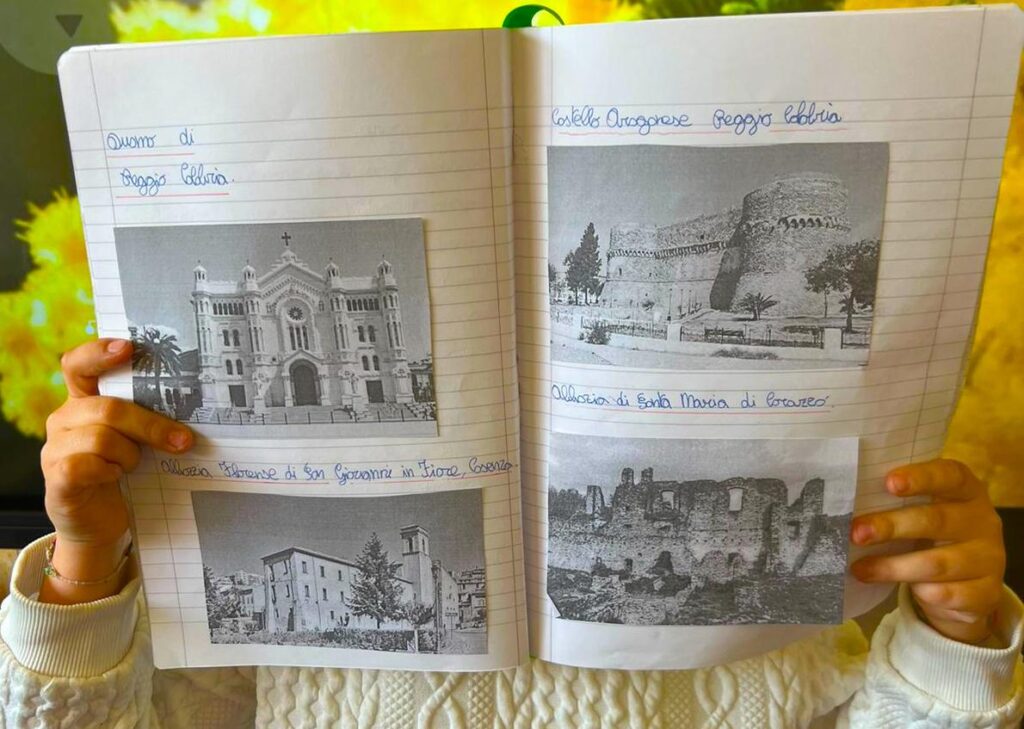 Duomo di
Reggio Calabria.
Abbazia Florense di San Giovanni in Fiore, Cosenza.
Castello Aragonese Reggio Calabria
Abbazia di Santa Maria di Corazzo.